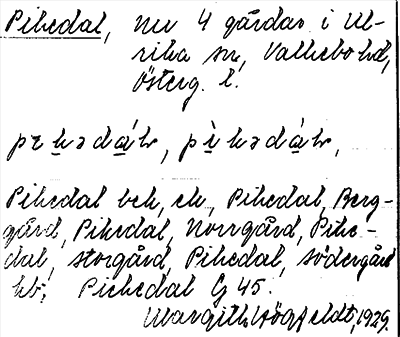 Pikedal, nu 4 gårdar i Ul-
rika sn, Valkebo hd,
Österg. l.
Pikedal bek, ek, Pikedal, Berg-
gård, Pikedal, Norrgård, Pike-
dal, storgård, Pikedal, södergård
hb; Pickedal G 45.
Margith Högfeldt, 1929.